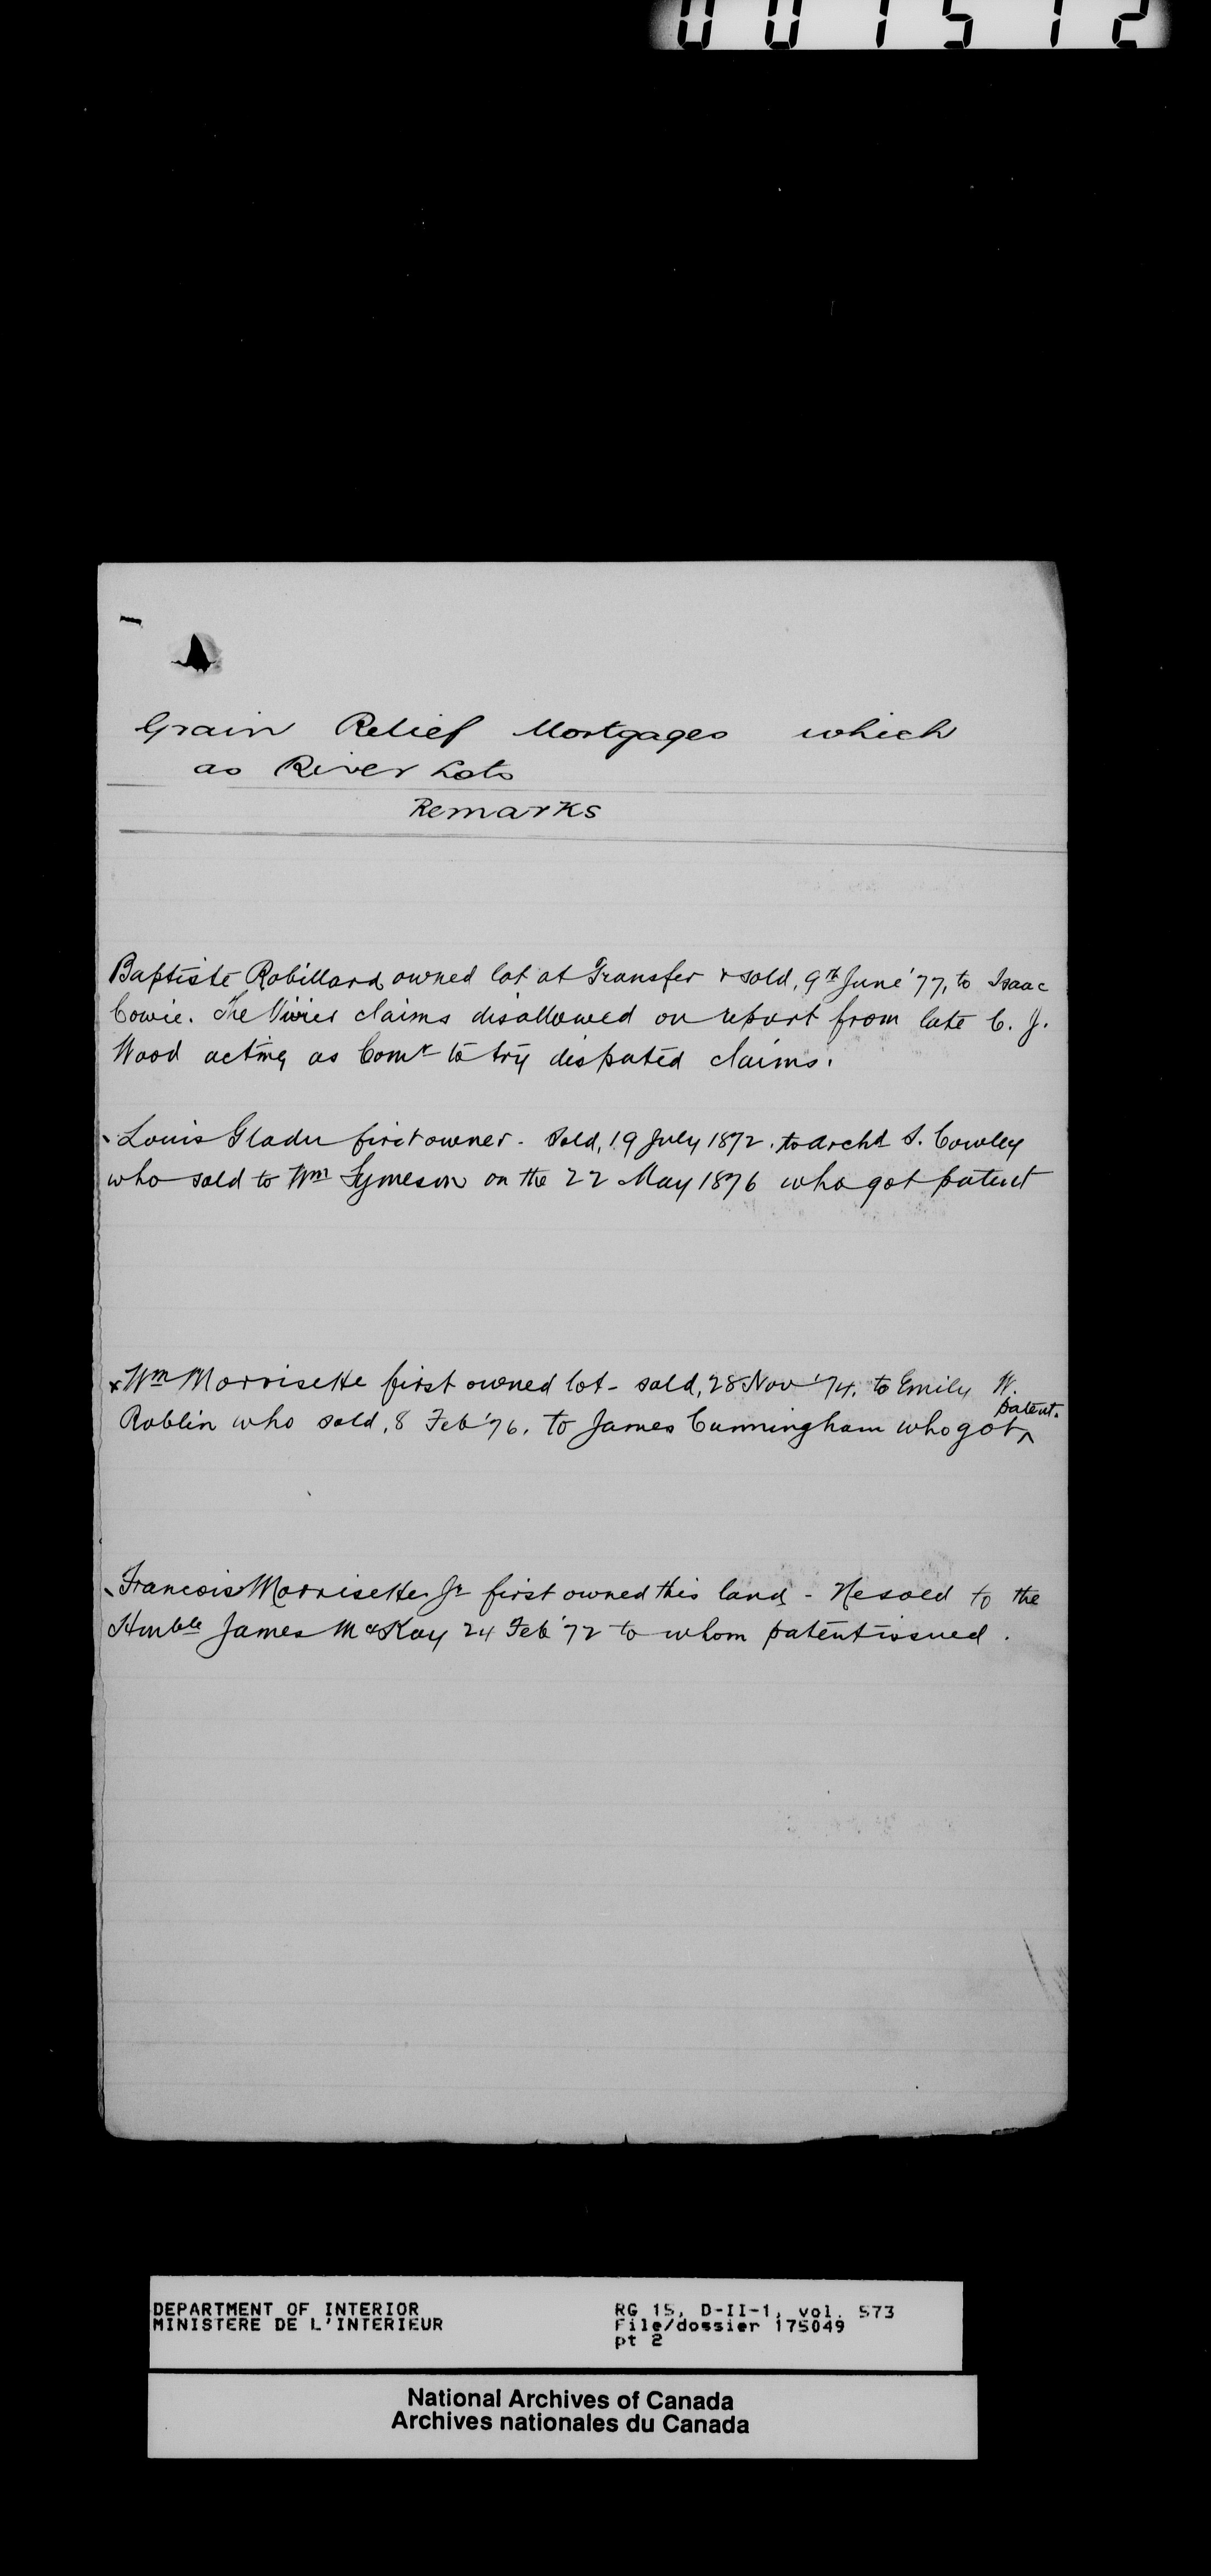 001512
Grain Relief Mortgages which
as River Lots
Remarks
Baptiste Robillard owned lot at Transfer & sold, 9th June '77, to Isaac
Cowie. The Vivier claims disallowed on report from late C. J.
Wood acting as Comr to try disputed claims.
Louis Gladu first owner - Sold, 19 July 1872, to Archd S. Cowley
who sold to Wm Symeson on the 22 May 1876 who got patent
x Wm Morrisette first owned lot - sold, 28 Nov '74, to Emily W.
Roblin who sold, 8 Feb '76, to James Cunningham who got ^ patent.
Francois Morrisette Jr first owned this land - He sold to the
Honble James McKay 24 Feb '72 to whom patent issued.
DEPARTMENT OF INTERIOR
MINISTERE DE L'INTERIEUR
RG 15, D-II-1, vol. 573
File/dossier 175049
pt 2
National Archives of Canada
Archives nationales du Canada